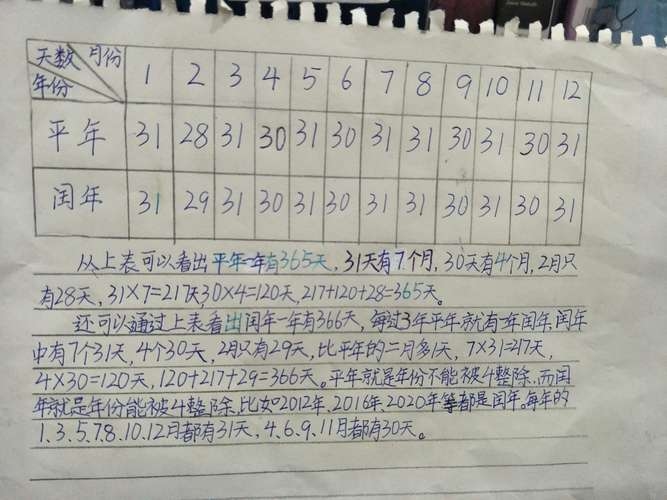 天数 月份
年份 1 2 3 4 5 6 7 8 9 10 11 12
平年 31 28 31 30 31 30 31 31 30 31 30 31
闰年 31 29 31 30 31 30 31 31 30 31 30 31
从上表可以看出平年一年有365天,31天有7个月,30天有4个月,2月只
有28天,31×7=217天,30×4=120天,217+120+28=365天。
还可以通过上表看出闰年一年有366天,每过3年平年,就有一年闰年,闰年
中有7个31天,4个30天,2月只有29天,比平年的二月多1天,7×31=217天,
4×30=120天,120+217+29=366天。平年就是年份不能被4整除,而闰
年就是年份能被4整除,比如2012年、2016年、2020年等都是闰年。每年的
1.3.5.7.8.10.12月都有31天,4.6.9.11月都有30天。